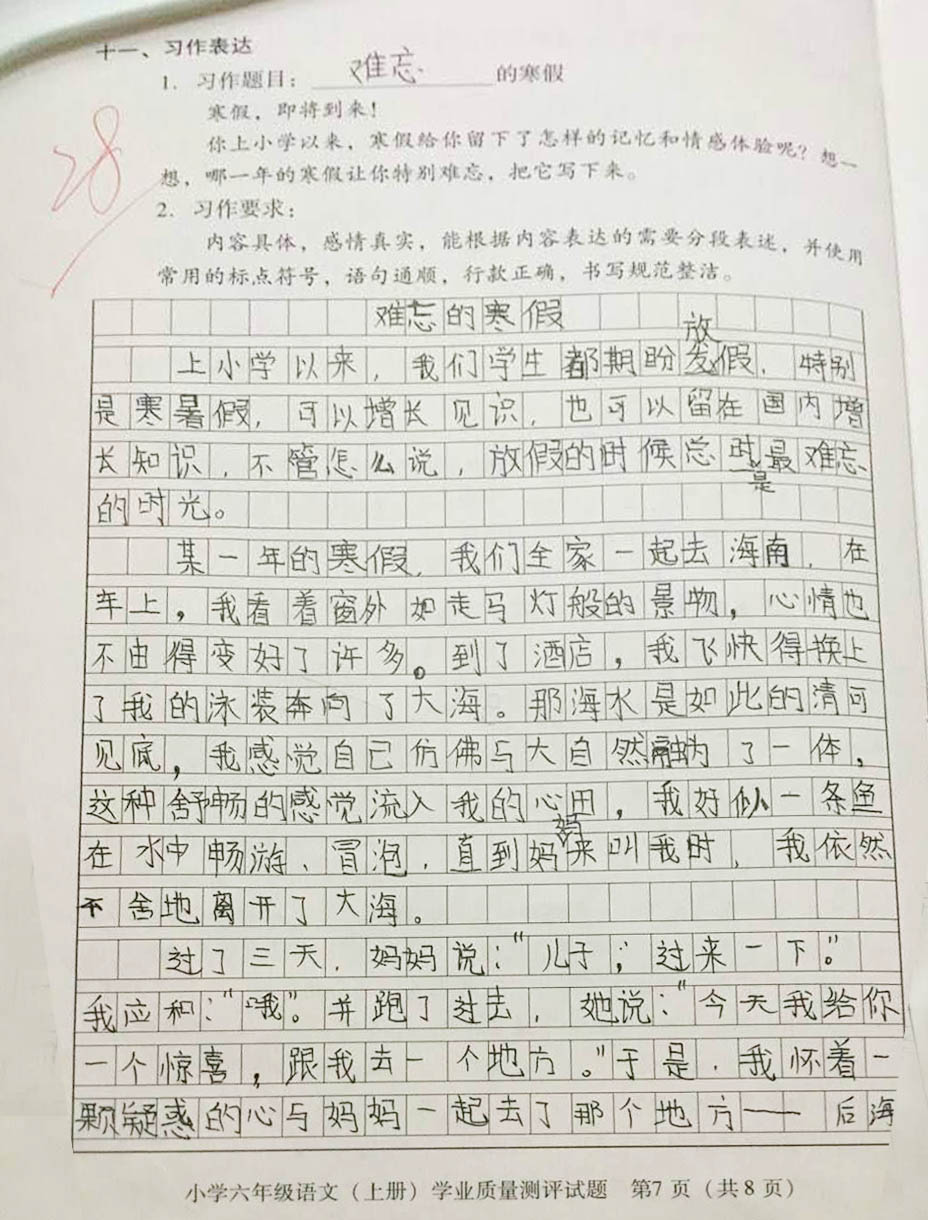 十一、习作表达
1. 习作题目：难忘的寒假
寒假，即将到来！
你上小学以来，寒假给你留下了怎样的记忆和情感体验呢？想一
想，哪一年的寒假让你特别难忘，把它写下来。
28
2. 习作要求：
内容具体，感情真实，能根据内容表达的需要分段表述，并使用
常用的标点符号，语句通顺，行款正确，书写规范整洁。
难忘的寒假
上小学以来，我们学生都期盼放假，特别
是寒暑假，可以增长见识，也可以留在国内增
长知识，不管怎么说，放假的时候总是最难忘
的时光。
某一年的寒假，我们全家一起去海南，在
车上，我看着窗外如走马灯般的景物，心情也
不由得变好了许多。到了酒店，我飞快得换上
了我的泳装奔向了大海。那海水是如此的清可
见底，我感觉自己仿佛与大自然融为了一体，
这种舒畅的感觉流入我的心田，我好似一条鱼
在水中畅游、冒泡，直到妈妈来叫我时，我依然
不舍地离开了大海。
过了三天，妈妈说：“儿子，过来一下。”
我应和：“哦”。并跑了过去，她说：“今天我给你
一个惊喜，跟我去一个地方。”于是，我怀着一
颗疑惑的心与妈妈一起去了那个地方——后海
小学六年级语文（上册）学业质量测评试题 第7页（共8页）